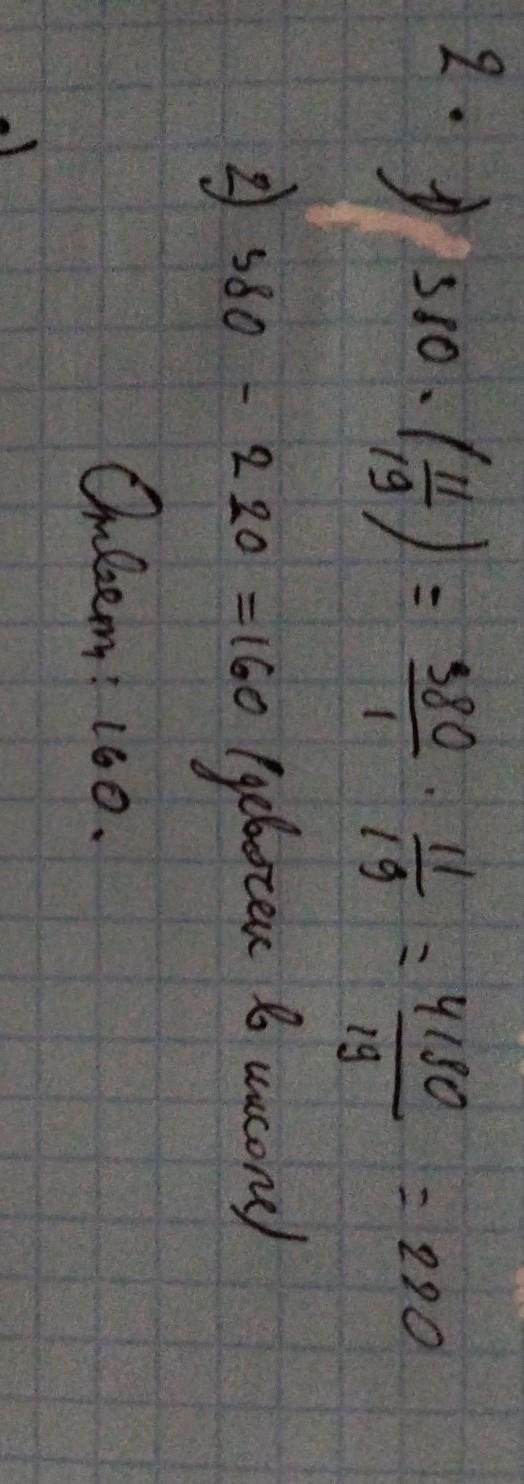 2. 1) 380 · (11/19) = 380/1 · 11/19 = 4180/19 = 220
2) 380 - 220 = 160 (девочек в школе)
Ответ: 160.